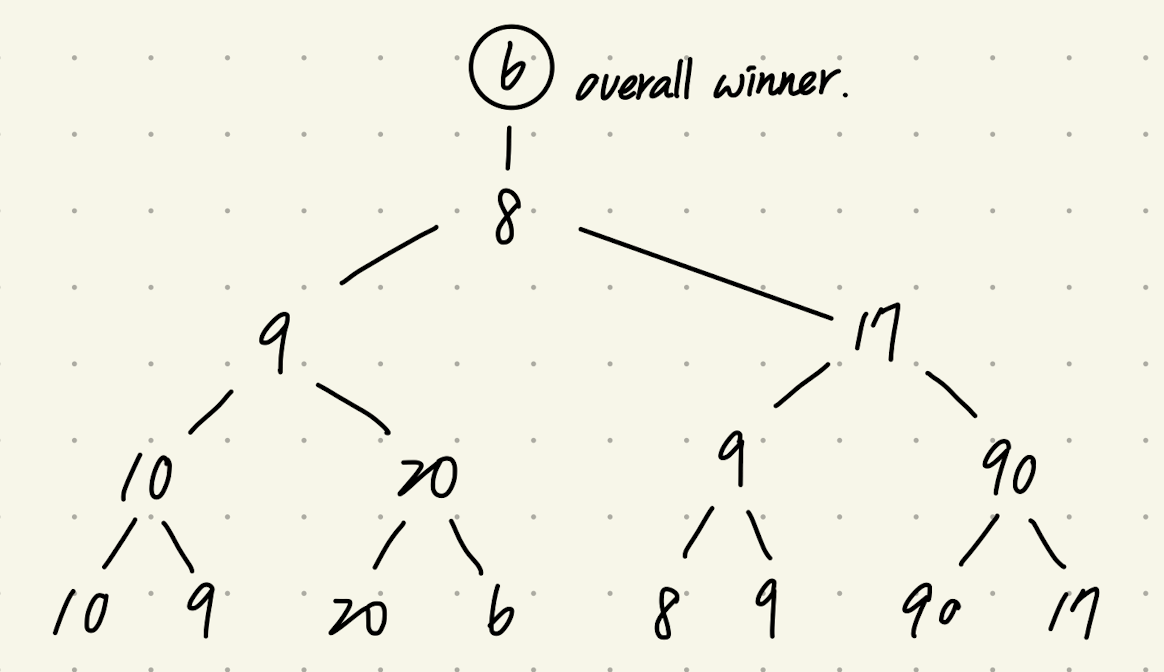 6 overall winner.
8
9 17
10 20 9 90
10 9 20 6 8 9 90 17